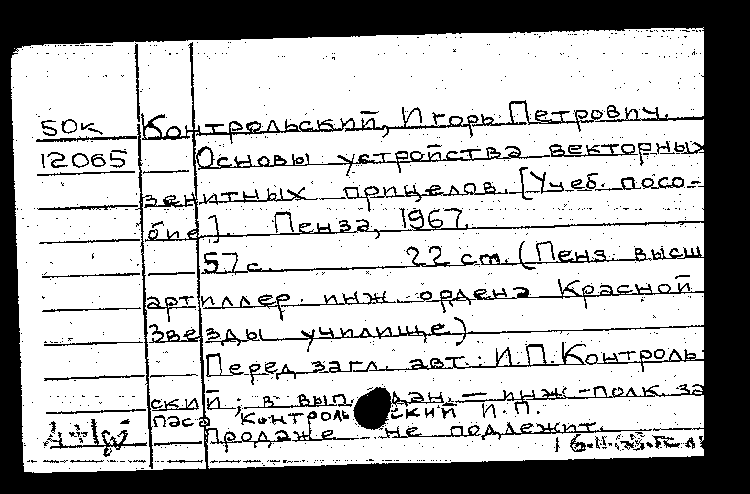 50к Контрольский, Игорь Петрович.
12065 Основы устройства векторных
зенитных прицелов. [Учеб. посо-
бие]. Пенза, 1967.
57с. 22 ст. (Пенз. высш
артиллер. инж. ордена Красной
Звезды училище)
Перед загл. авт.: И.П.Контроль-
ский; в вып. дан. — инж.-полк. за
паса Контрольский И.П.
Продаже не подлежит.